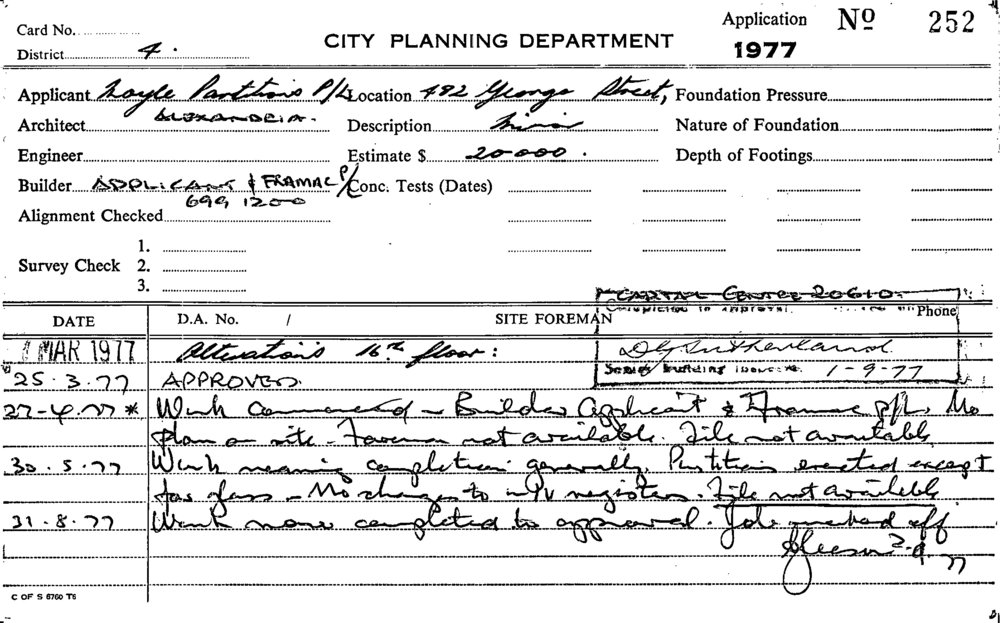 Card No.
District 4.
CITY PLANNING DEPARTMENT
Application Nº 252
1977
Applicant Moyle Partitions P/L Location 482 George Street, Foundation Pressure
ALEXANDRIA.
Architect Description Minor Nature of Foundation
Engineer Estimate $ 20000. Depth of Footings
Builder APPLICANT & FRAMAC P/L Conc. Tests (Dates)
699 1200
Alignment Checked
Survey Check 1.
2.
3.
CAPITAL CENTRE 20610.
DATE D.A. No. / SITE FOREMAN Phone
Completed to approval.
1 MAR 1977 Alterations 16th floor:
D G Sutherland
Senior Building 1-9-77
25.3.77 APPROVED
27-4.77 * Work Commenced - Builder Applicant & Framac P/L. No
plan on site - Foreman not available. File not available
30.5.77 Work nearing completion generally. Partitions erected except
for glass - No changes to registers. File not available
31.8.77 Work now completed to approval. Job marked off
Gleeson 2-9-77
C OF S 6760 T6